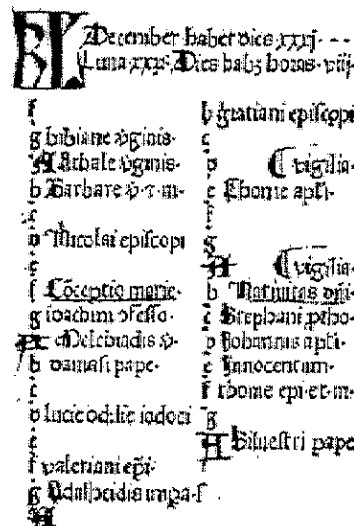 KL December habet dies xxxj·
Luna xxx· Dies habꝫ horas· viij·
f
g bibiane v̄ginis·
A Athale v̄ginis·
b Barbare v· ⁊ m·
c
d Nicolai episcopi
e
f Cōceptio marie·
g ioachim ɔfesso·
A Melchiadis
b damasi pape·
c
d lucie odilie iodoci
e
f valeriani ep̄i·
g Adalheidis impa·
A
b gratiani episcopi
c
d vigilia·
e Thome apl̄i·
f
g
A vigilia·
b Natiuitas dn̄i·
c Stephani
d Johannis apl̄i·
e Innocentum·
f thome epi· et· m·
g
A Siluestri pape